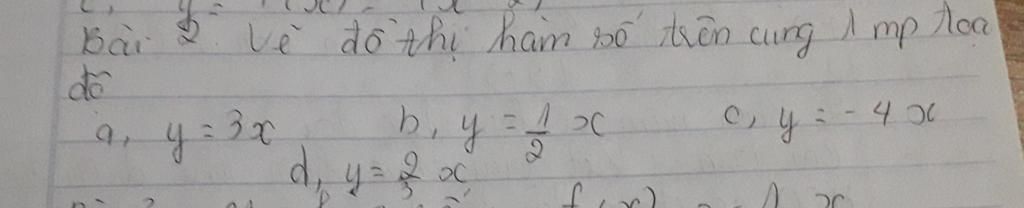 Bài 2. Vẽ đồ thị hàm số trên cùng 1 mp tọa
độ
a, y = 3x b, y = 1/2 x c, y = - 4x
d, y = 2/3 x